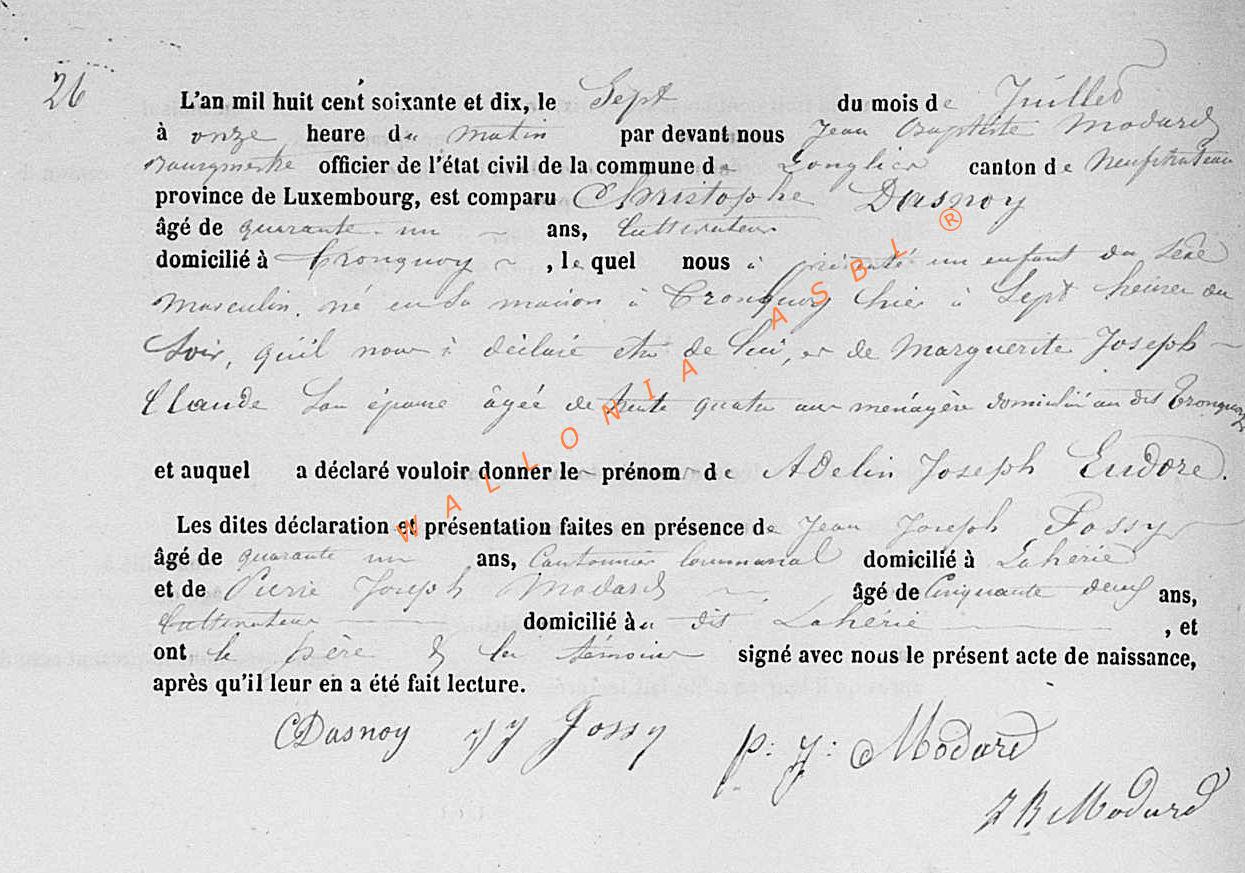 26
L'an mil huit cent soixante et dix, le Sept du mois de Juillet
à onze heure du matin par devant nous Jean Baptiste Modard
Bourgmestre officier de l'état civil de la commune de Longlier canton de Neufchateau
province de Luxembourg, est comparu Christophe Dasnoy
âgé de quarante un ans, Cultivateur
domicilié à Tronquoy, lequel nous à présenté un enfant du Sexe
Masculin, né en Sa maison à Tronquoy hier à Sept heures du
Soir, qu'il nous à déclaré être de lui, et de Marguerite Joseph
Claude Son épouse âgée de trente quatre ans ménagère domiciliée au dit Tronquoy
et auquel a déclaré vouloir donner le prénom de Adelin Joseph Eudore.
Les dites déclaration et présentation faites en présence de Jean Joseph Fossy
âgé de quarante un ans, Cantonnier Communal domicilié à Lahérie
et de Pierre Joseph Modard âgé de Cinquante deux ans,
Cultivateur domicilié au dit Lahérie, et
ont le père & les témoins signé avec nous le présent acte de naissance,
après qu'il leur en a été fait lecture.
CDasnoy JJ Fossy p: J: Modard
J B Modard
WALLONIA ASBL ®